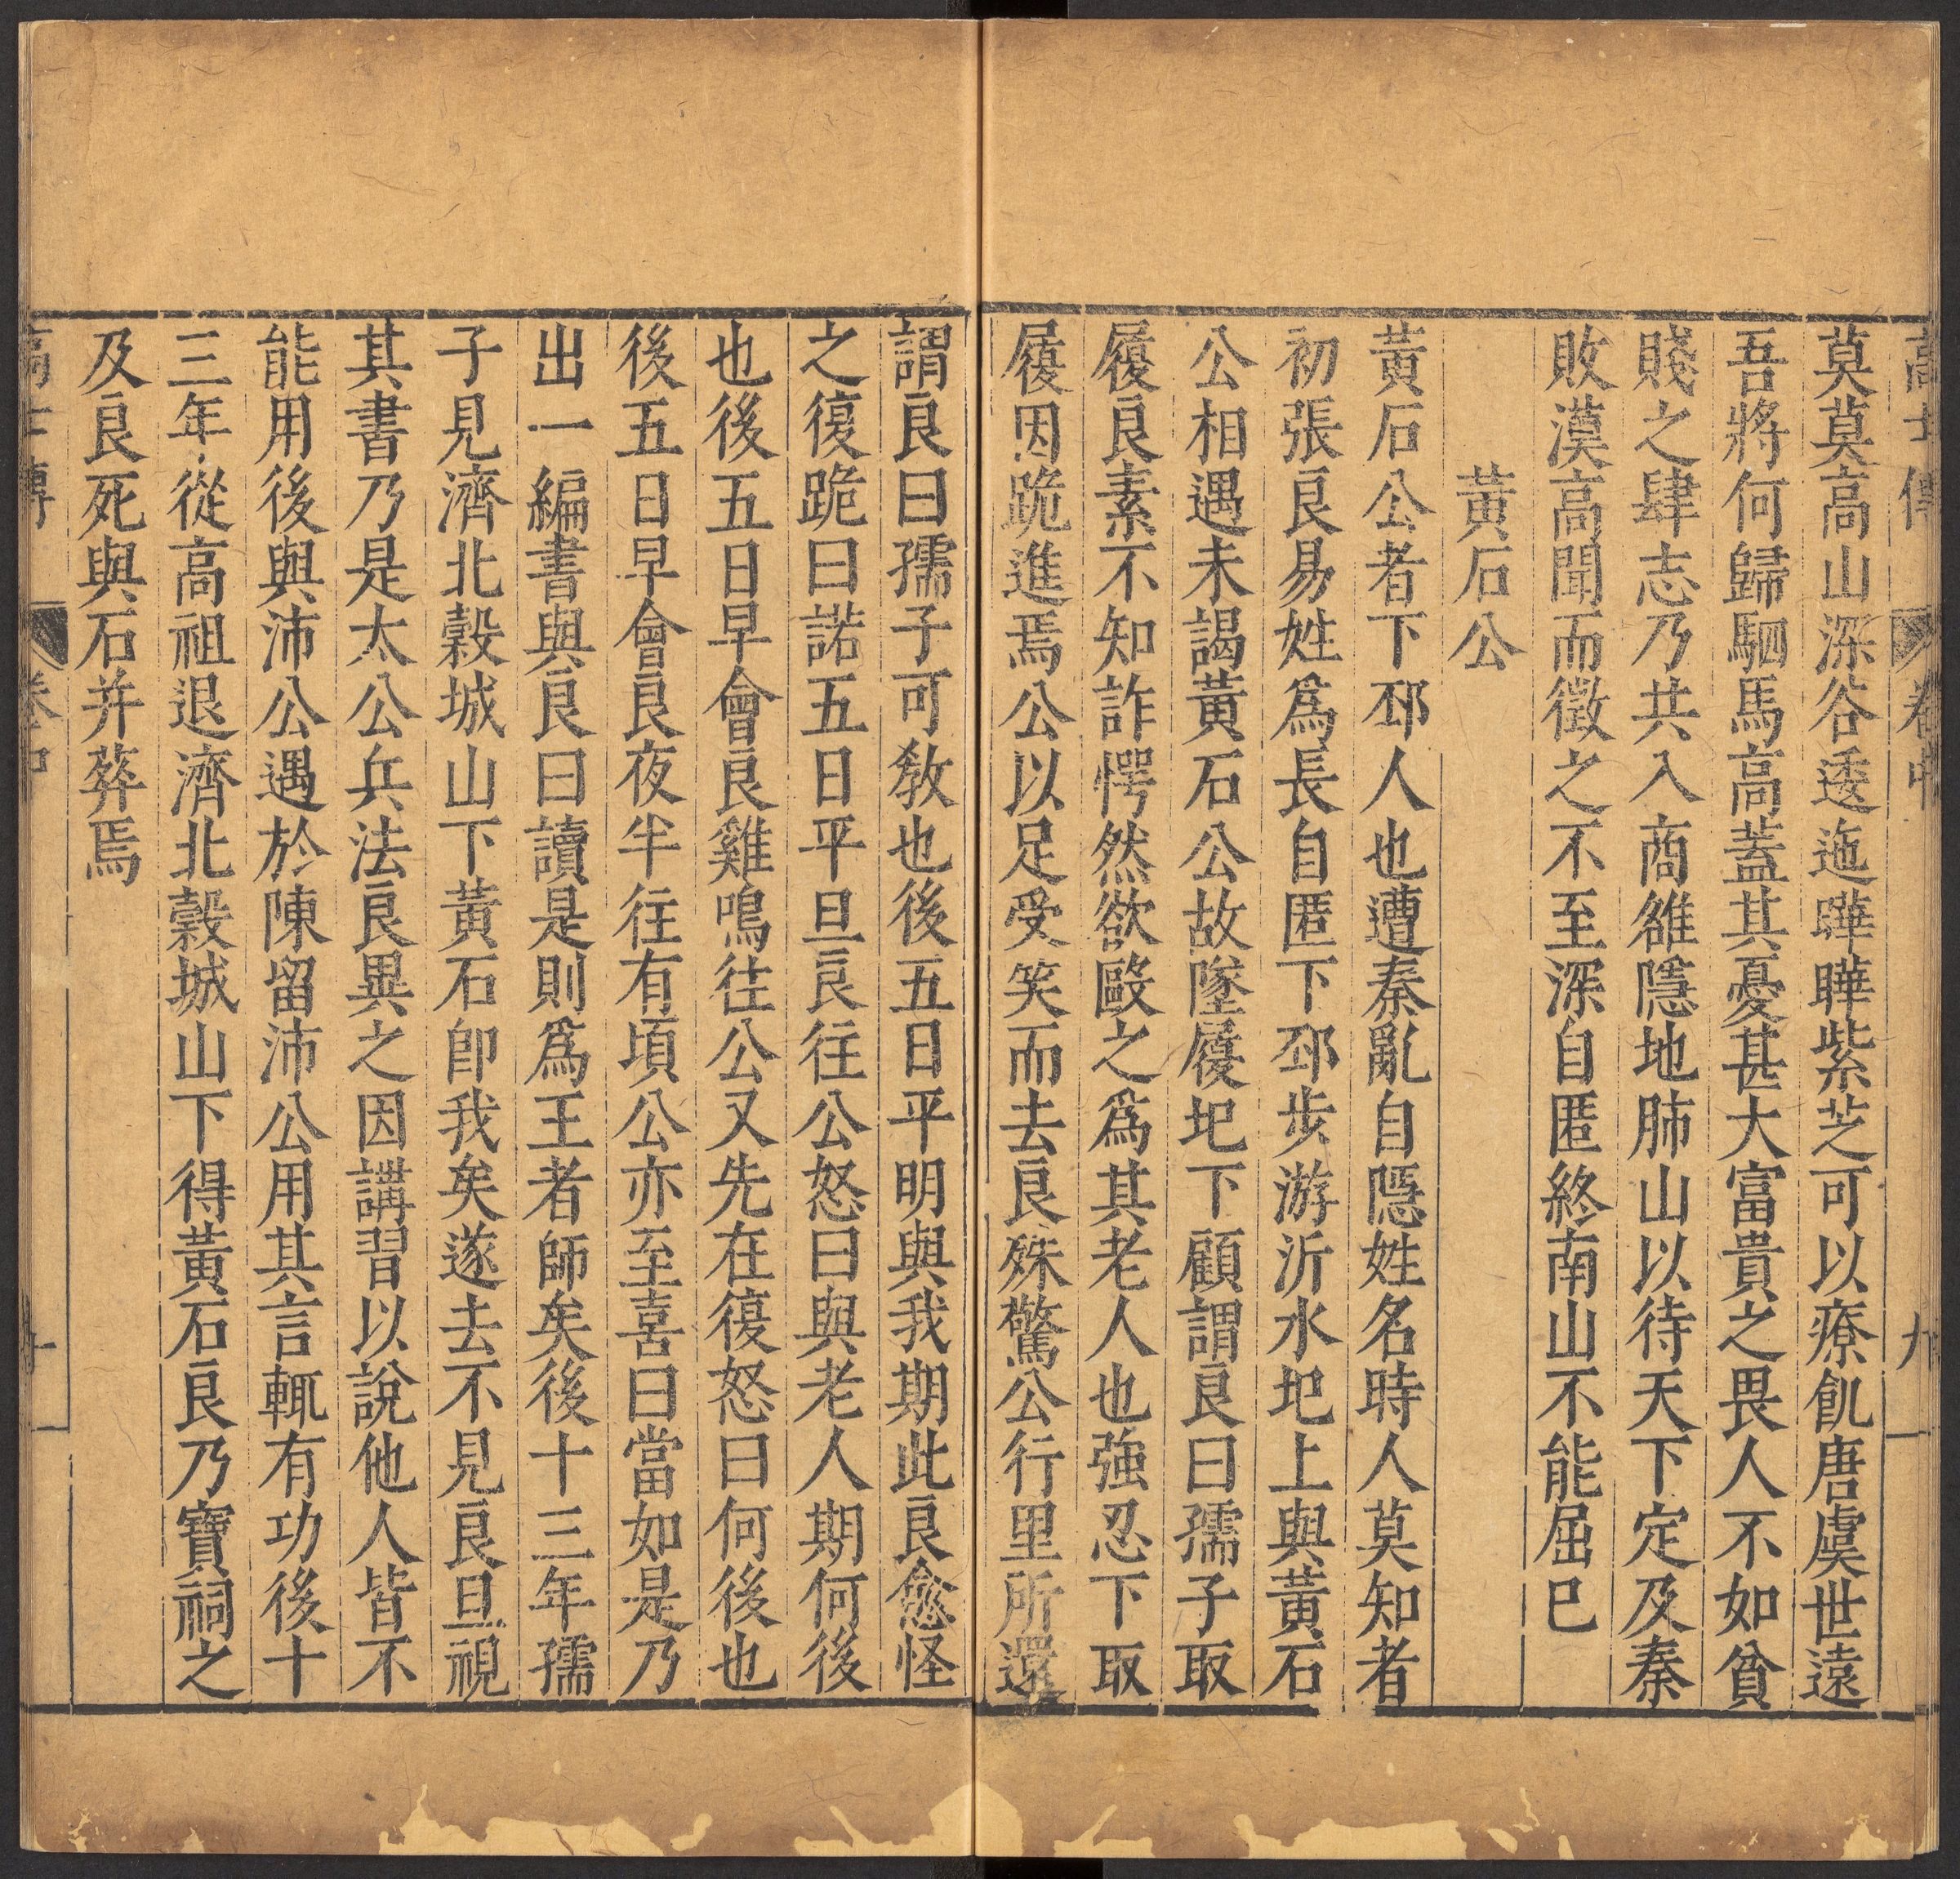 高士傳 卷中 九
莫莫高山深谷逶迤曄曄紫芝可以療飢唐虞世遠
吾將何歸駟馬高蓋其憂甚大富貴之畏人不如貧
賤之肆志乃共入商雒隱地肺山以待天下定及秦
敗漢高聞而徵之不至深自匿終南山不能屈巳
黃石公
黃石公者下邳人也遭秦亂自隱姓名時人莫知者
初張良易姓爲長自匿下邳步游沂水圯上與黃石
公相遇未謁黃石公故墜履圯下顧謂良曰孺子取
履良素不知詐愕然欲毆之爲其老人也強忍下取
履因跪進焉公以足受笑而去良殊驚公行里所還
謂良曰孺子可教也後五日平明與我期此良愈怪
之復跪曰諾五日平旦良往公怒曰與老人期何後
也後五日早會良雞鳴往公又先在復怒曰何後也
後五日早會良夜半往有頃公亦至喜曰當如是乃
出一編書與良曰讀是則爲王者師矣後十三年孺
子見濟北穀城山下黃石卽我矣遂去不見良旦視
其書乃是太公兵法良異之因講習以說他人皆不
能用後與沛公遇於陳留沛公用其言輒有功後十
三年從高祖退濟北穀城山下得黃石良乃寶祠之
及良死與石并葬焉
高士傳 卷中 十